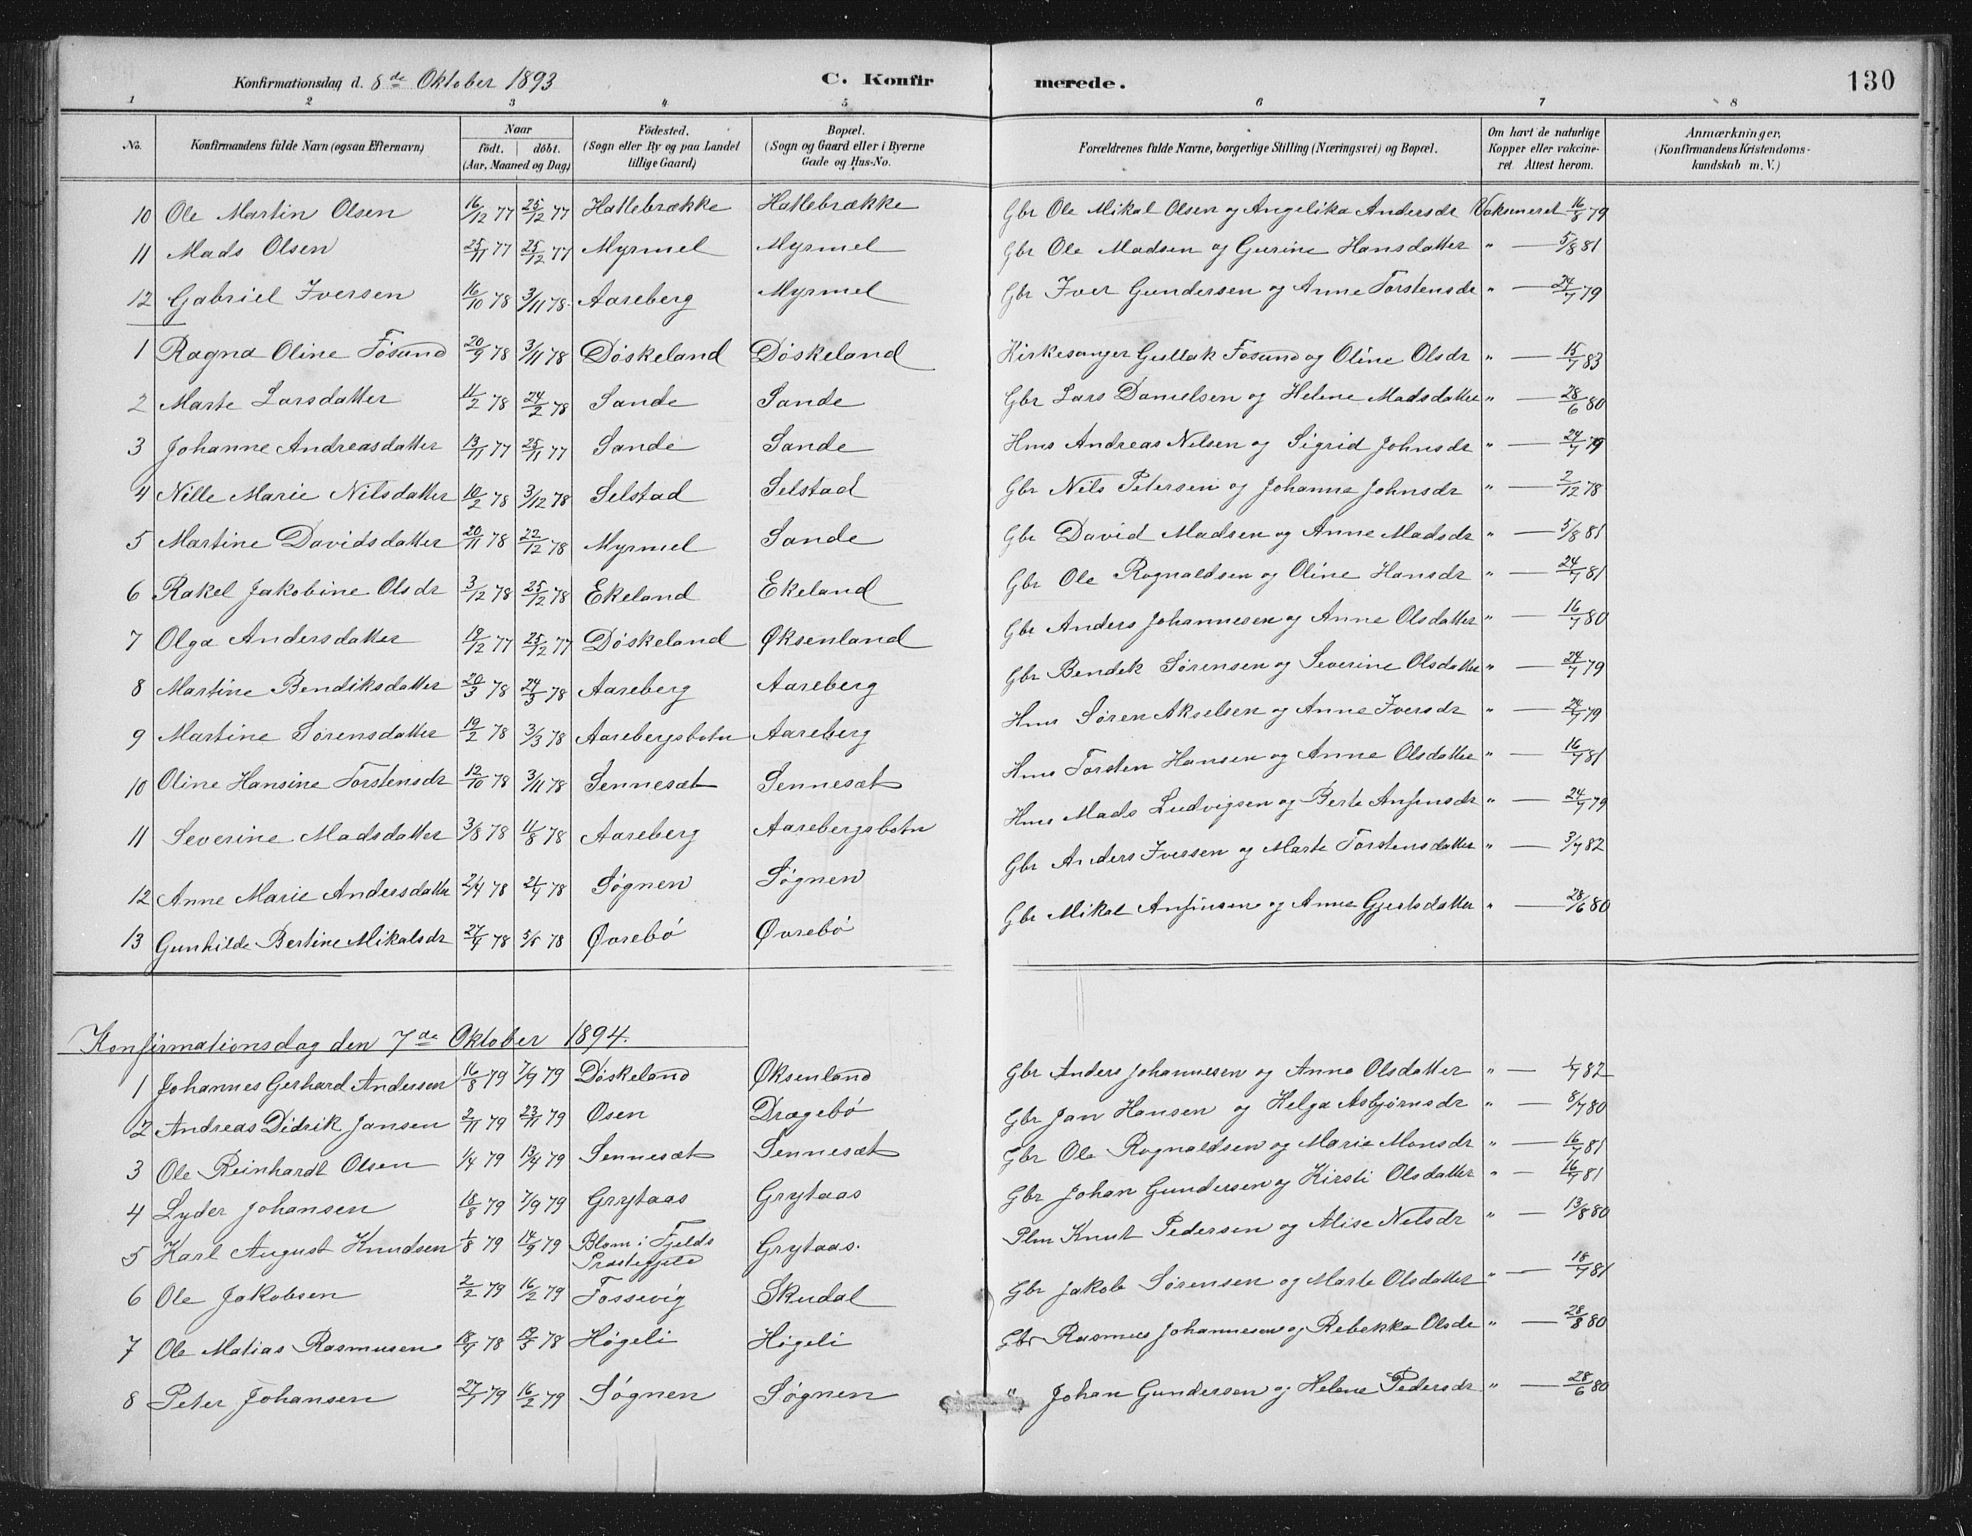 Konfirmationsdag d. 8de Oktober 1893 C. Konfirmerede. 130
1 2 3 4 5 6 7 8
No. Konfirmandens fulde Navn (ogsaa Efternavn) Naar födt. döbt. (Aar, Maaned og Dag) Födested. (Sogn eller By og paa Landet tillige Gaard) Bopæl. (Sogn og Gaard eller i Byerne Gade og Hus-No.) Forældrenes fulde Navne, borgerlige Stilling (Næringsvei) og Bopæl. Om havt de naturlige Kopper eller vakcineret. Attest herom. Anmærkninger. (Konfirmandens Kristendomskundskab m. V.)
10 Ole Martin Olsen 16/12 77 25/12 77 Hatlebrække Hatlebrække Gbr Ole Mikal Olsen og Angelika Andersdr Vaksineret 16/8 79
11 Mads Olsen 25/11 77 25/12 77 Myrmel Myrmel Gbr Ole Madsen og Gurine Hansdatter " — 5/8 81
12 Gabriel Iversen 16/10 78 3/11 78 Aareberg Myrmel Gbr Iver Gundersen og Anne Torstensdr " — 24/7 79
1 Ragna Oline Fosund 20/9 78 3/11 78 Döskeland Döskeland Kirkesanger Guttak Fosund og Oline Olsdr " — 15/7 83
2 Marte Larsdatter 11/2 78 24/2 78 Sande Sande Gbr Lars Danielsen og Helene Madsdatter " — 28/6 80
3 Johanne Andreasdatter 13/11 77 25/11 77 Sande Sande Hms Andreas Nilsen og Sigrid Johnsdr " — 24/7 79
4 Nille Marie Nilsdatter 10/2 78 3/12 78 Selstad Selstad Gbr Nils Petersen og Johanne Johnsdr " — 2/12 78
5 Martine Davidsdatter 20/11 78 22/12 78 Myrmel Sande Gbr David Madsen og Anne Madsdr " — 5/8 81
6 Rakel Jakobine Olsdr 3/12 78 25/12 78 Ekeland Ekeland Gbr Ole Rognaldsen og Oline Hansdr " — 24/7 81
7 Olga Andersdatter 19/12 77 25/12 77 Döskeland Øksenland Gbr Anders Johannesen og Anne Olsdatter " — 16/7 80
8 Martine Bendiksdatter 20/3 78 24/3 78 Aareberg Aareberg Gbr Bendik Sørensen og Severine Olsdatter " — 24/7 79
9 Martine Sørensdatter 19/2 78 3/3 78 Aarebergsbotn Aareberg Hms Søren Akselsen og Anne Iversdr " — 24/7 79
10 Oline Hansine Torstensdr 12/10 78 3/11 78 Sennesæt Sennesæt Hms Torsten Hansen og Anne Olsdatter " — 16/7 81
11 Severine Madsdatter 3/8 78 11/8 78 Aareberg Aarebergsbotn Hms Mads Ludvigsen og Berte Anfinsdr " — 24/7 79
12 Anne Marie Andersdatter 2/4 78 21/4 78 Søgnen Søgnen Gbr Anders Iversen og Marte Torstensdatter " — 3/7 82
13 Gunhilde Bertine Mikalsdr 27/4 78 5/5 78 Øvrebö Øvrebö Gbr Mikal Anfinsen og Anne Gjertsdatter " — 28/6 80
Konfirmationsdag den 7de Oktober 1894.
1 Johannes Gerhard Andersen 16/8 79 7/9 79 Döskeland Øksenland Gbr Anders Johannesen og Anna Olsdatter " — 1/7 82
2 Andreas Didrik Jansen 2/11 79 23/11 79 Osen Dragebö Gbr Jan Hansen og Helga Asbjørnsdr " — 8/7 80
3 Ole Reinhardt Olsen 1/4 79 13/4 79 Sennesæt Sennesæt Gbr Ole Rognaldsen og Marie Monsdr " — 16/7 81
4 Lyder Johansen 18/8 79 7/9 79 Grytaas Grytaas Gbr Johan Gundersen og Kirsti Olsdatter " — 16/7 81
5 Karl August Knudsen 1/8 79 14/9 79 Blom i Fjelds Præstegjeld Grytaas. Plm Knut Pedersen og Alise Nilsdr " — 13/8 80
6 Ole Jakobsen 2/2 79 16/2 79 Fossevig Skudal Gbr Jakob Sørensen og Marte Olsdatter " — 18/7 81
7 Ole Matias Rasmusen 18/4 78 19/5 78 Högeli Högeli Gbr Rasmus Johannesen og Rebekka Olsdr " — 28/8 80
8 Peter Johansen 27/1 79 16/2 79 Søgnen Søgnen " Johan Gundersen og Helene Pedersdr " — 28/6 80